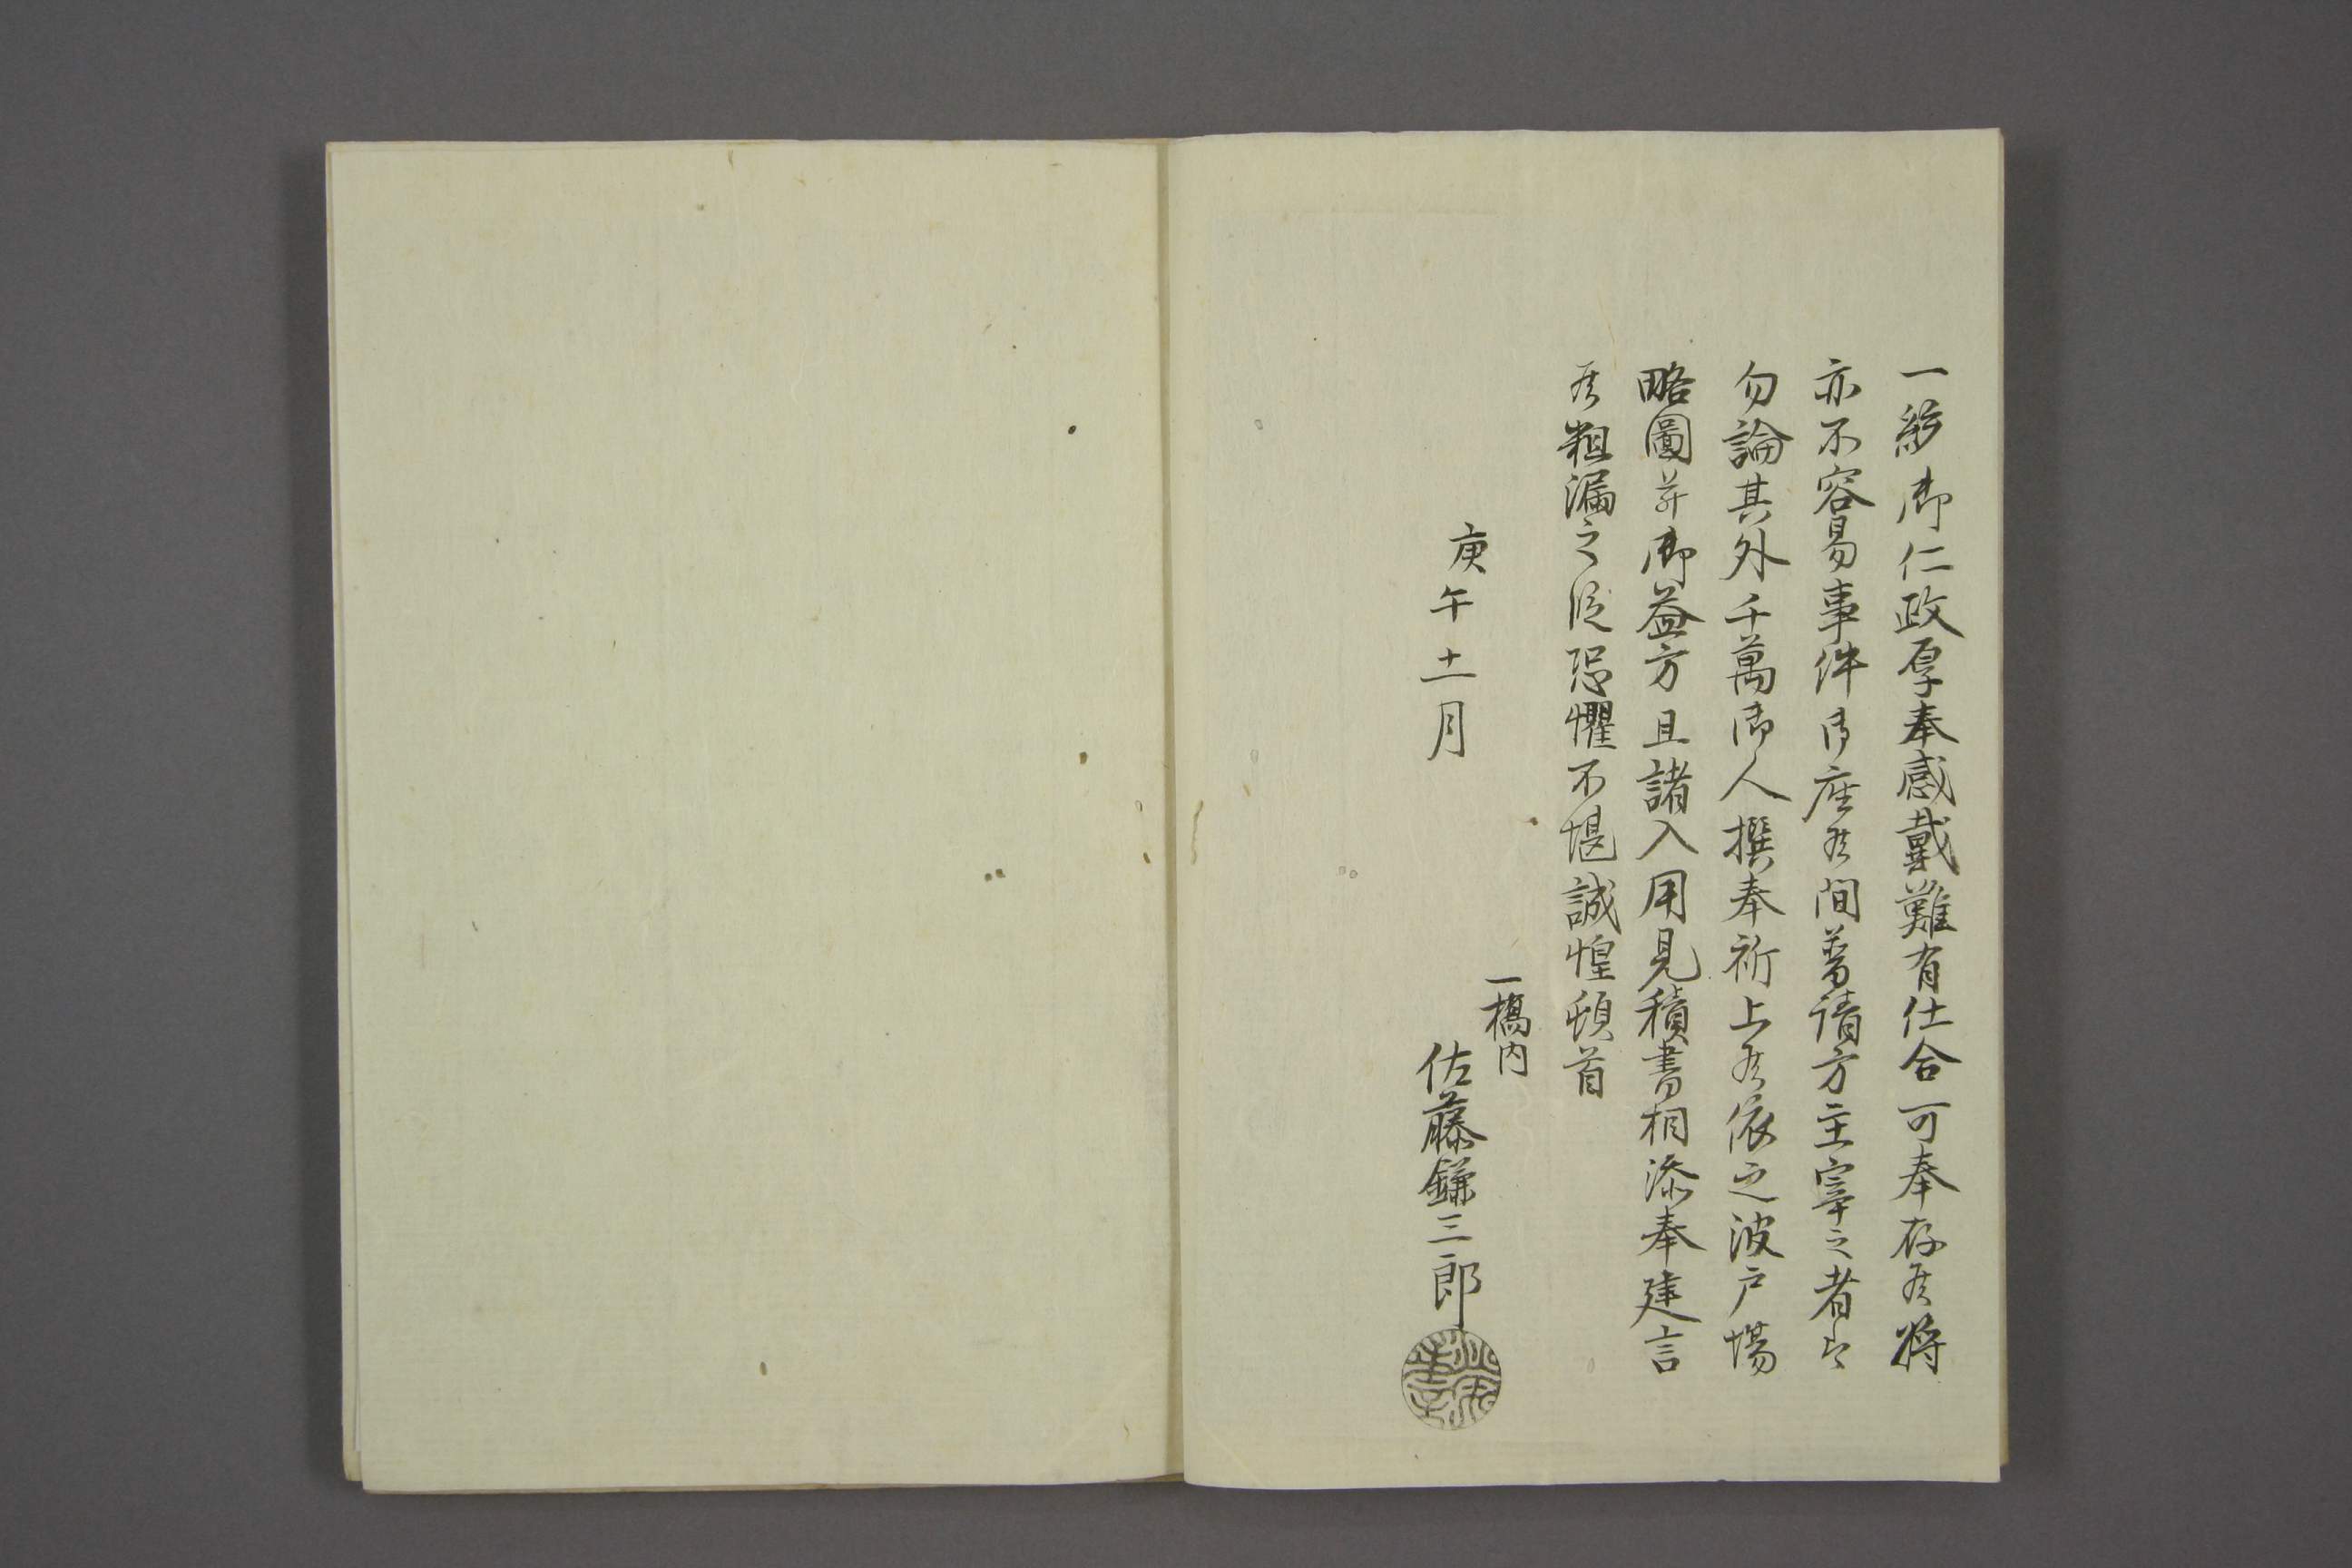 一統御仁政厚奉感戴難有仕合可奉存候将
亦不容易事件御座候間普請方主宰之者ハ
勿論其外千萬御人撰奉祈上候依之波戸場
略圖并御益方且諸入用見積書相添奉建言
候粗漏之段恐懼不堪誠惶頓首
庚午十一月
一橋内
佐藤鎌三郎